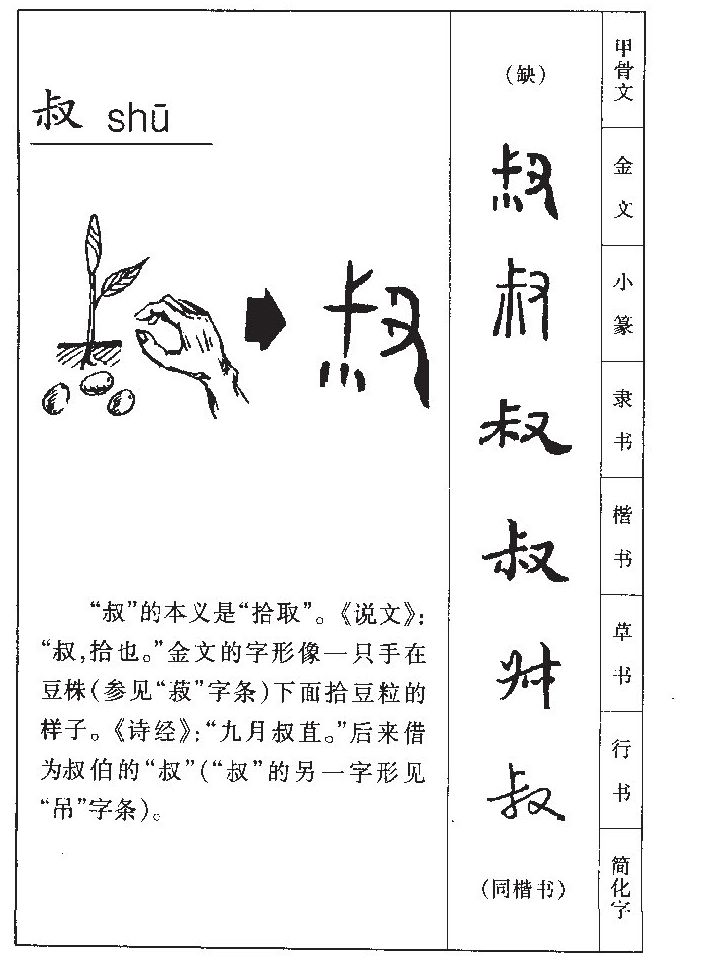 叔 shū
“叔”的本义是“拾取”。《说文》：
“叔，拾也。”金文的字形像一只手在
豆株（参见“菽”字条）下面拾豆粒的
样子。《诗经》：“九月叔苴。”后来借
为叔伯的“叔”（“叔”的另一字形见
“吊”字条）。
（缺）
叔
叔
叔
叔
叔
叔
（同楷书）
甲骨文
金文
小篆
隶书
楷书
草书
行书
简化字